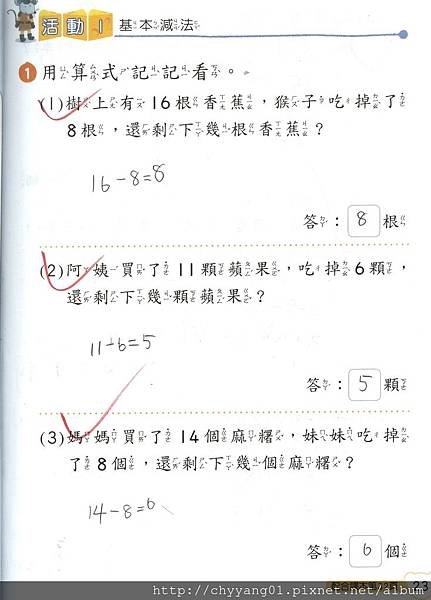 活動1 基本減法
1 用算式記記看。
(1)樹上有16根香蕉，猴子吃掉了
8根，還剩下幾根香蕉？
16-8=8
答：8根
(2)阿姨買了11顆蘋果，吃掉6顆，
還剩下幾顆蘋果？
11-6=5
答：5顆
(3)媽媽買了14個麻糬，妹妹吃掉
了8個，還剩下幾個麻糬？
14-8=6
答：6個
23
http://chyyang01.pixnet.net/album